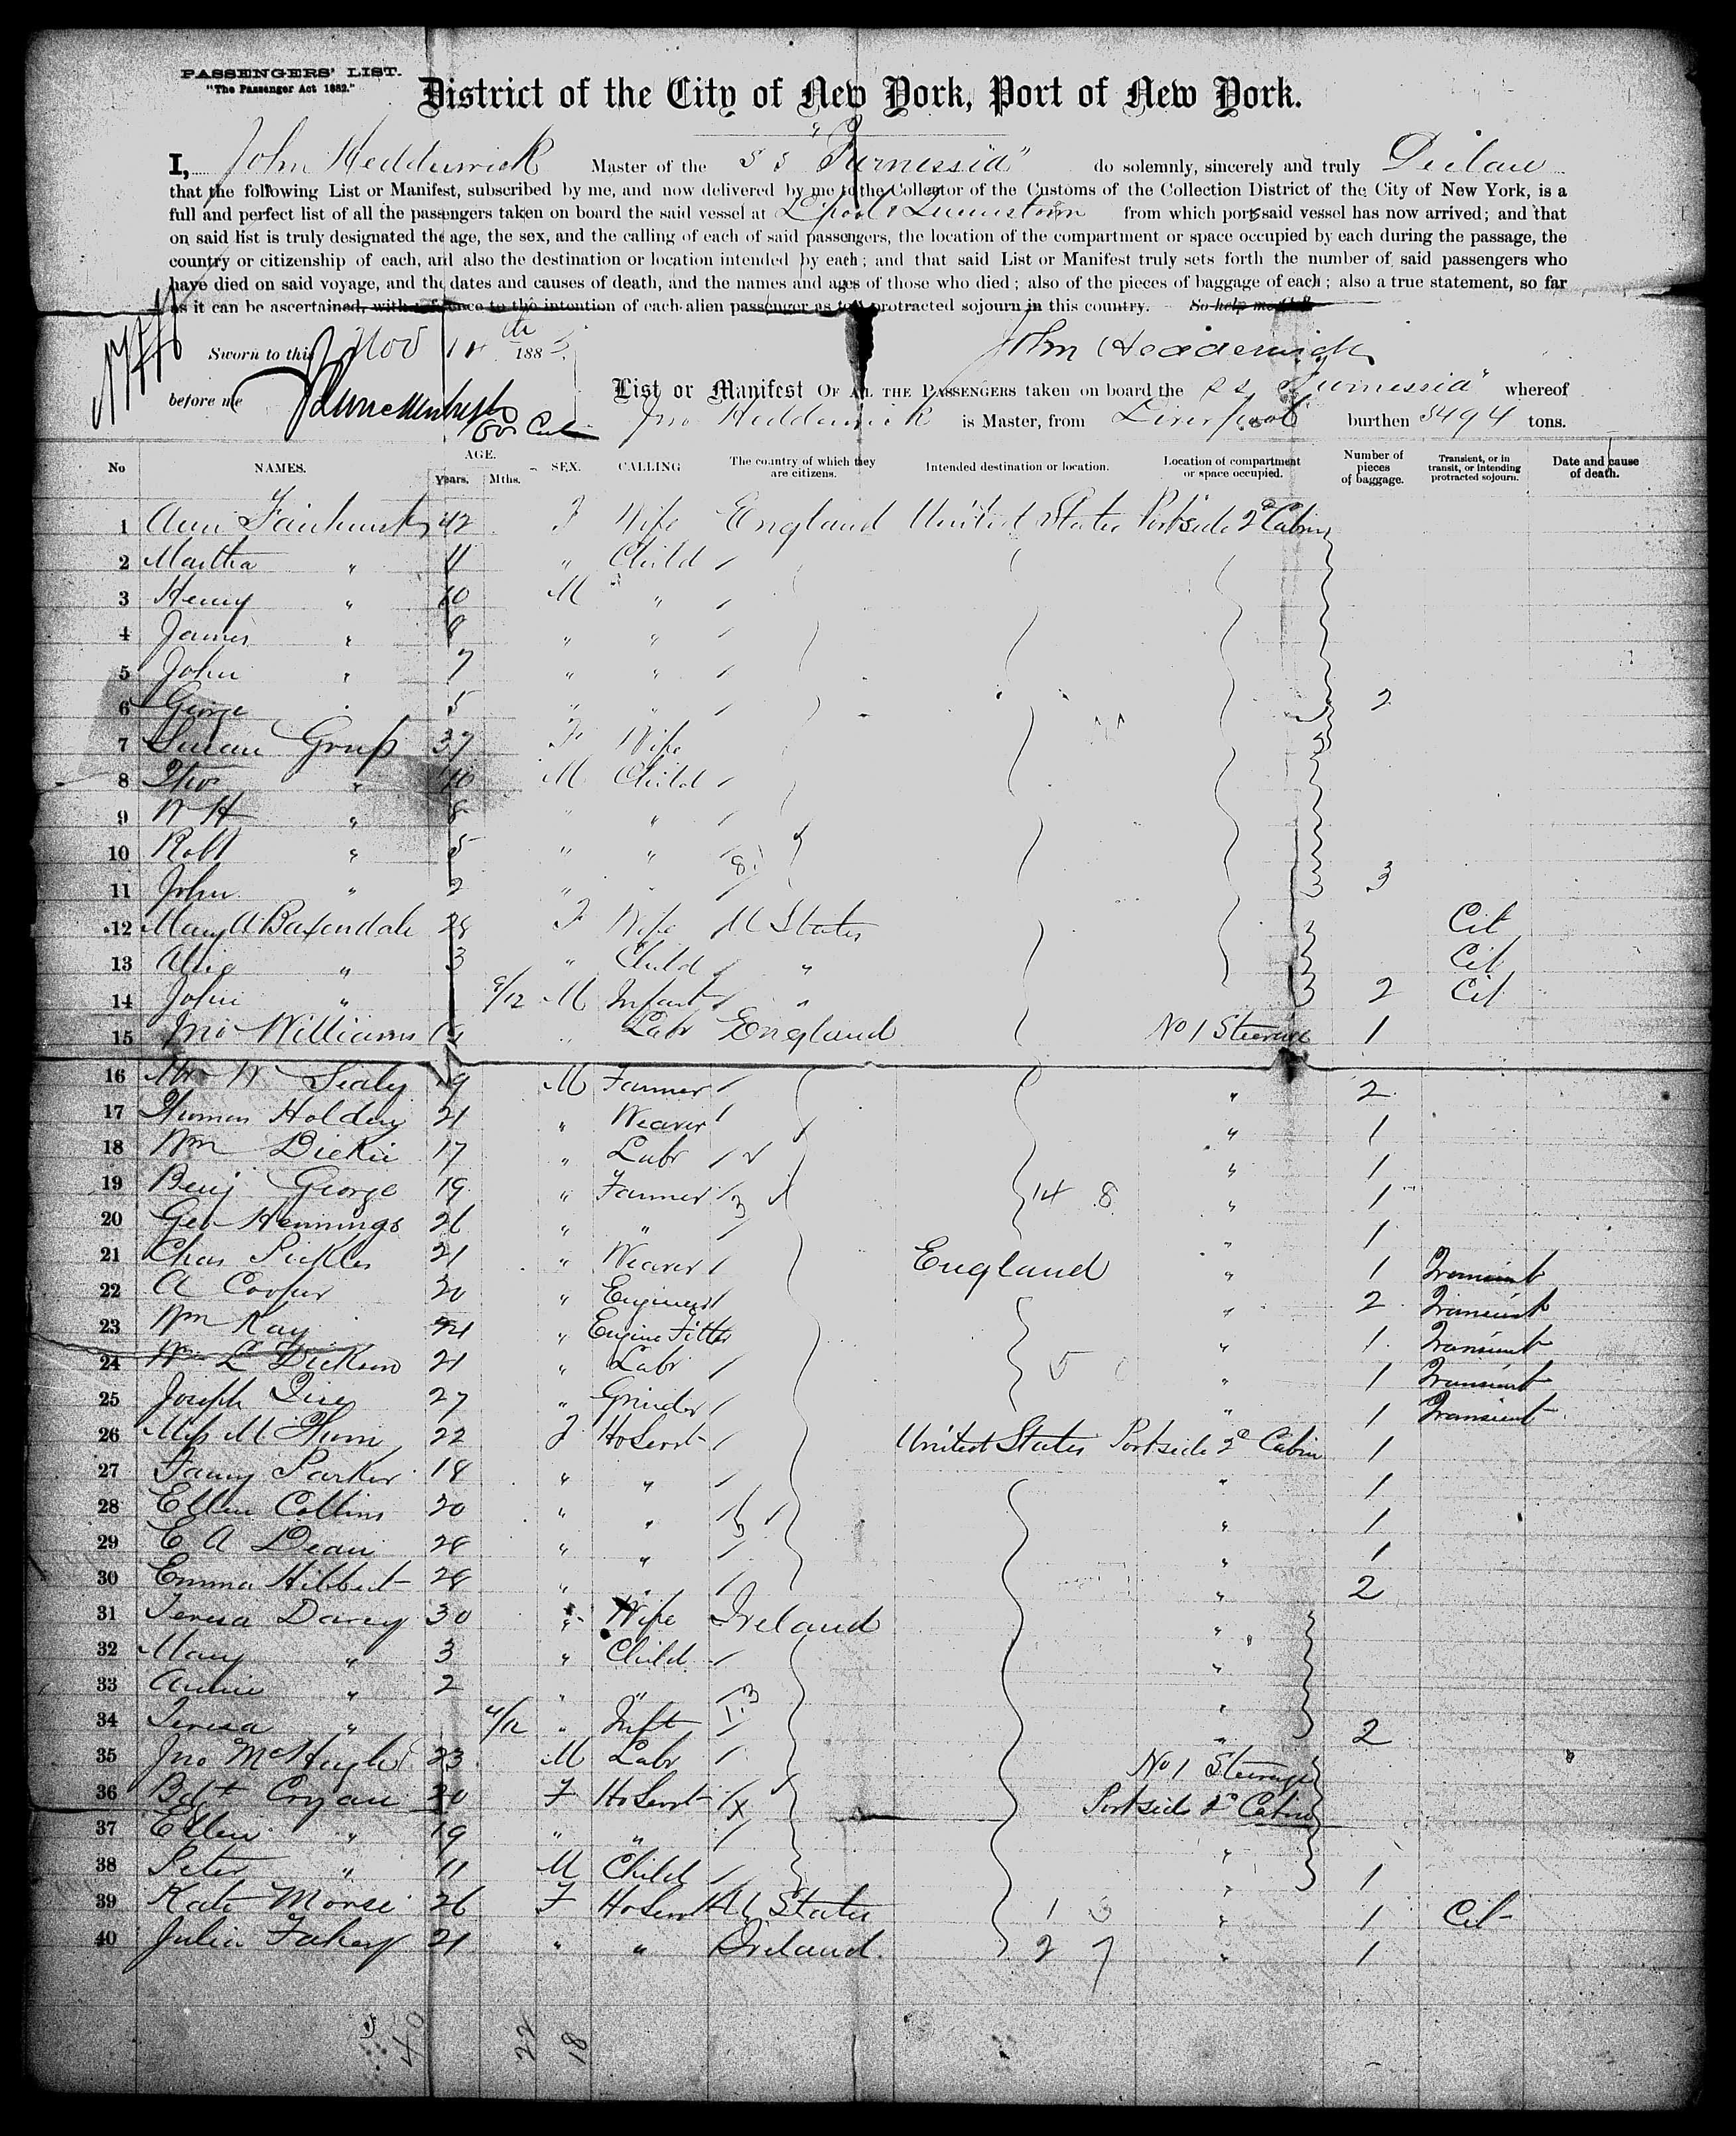 PASSENGERS' LIST.
"The Passenger Act 1882."
District of the City of New York, Port of New York.
I, John Hedderwick Master of the S S "Furnessia" do solemnly, sincerely and truly Declare
that the following List or Manifest, subscribed by me, and now delivered by me to the Collector of the Customs of the Collection District of the City of New York, is a
full and perfect list of all the passengers taken on board the said vessel at L'pool & Queenstown from which ports said vessel has now arrived; and that
on said list is truly designated the age, the sex, and the calling of each of said passengers, the location of the compartment or space occupied by each during the passage, the
country or citizenship of each, and also the destination or location intended by each; and that said List or Manifest truly sets forth the number of said passengers who
have died on said voyage, and the dates and causes of death, and the names and ages of those who died; also of the pieces of baggage of each; also a true statement, so far
as it can be ascertained, with reference to the intention of each alien passenger as to a protracted sojourn in this country. So help me God.
Sworn to this Nov 14th 188
John Hedderwick
before me
List or Manifest OF ALL THE PASSENGERS taken on board the S S "Furnessia" whereof
Jno Hedderwick is Master, from Liverpool burthen 5494 tons.
No NAMES. AGE. Years. Mths. SEX. CALLING The country of which they are citizens. Intended destination or location. Location of compartment or space occupied. Number of pieces of baggage. Transient, or in transit, or intending protracted sojourn. Date and cause of death.
1 Ann Fairhurst 42 F Wife England United States Portside 2d Cabin
2 Martha " 11 " Child
3 Henry " 10 M "
4 James " 8 " "
5 John " 7 " "
6 George " 5 " " 2
7 Susan 37 F Wife
8 Thos " 10 M Child
9 W H " 8 " "
10 Robt " 5 " "
11 John " 2 " " 3
12 Mary A Baxendale 28 F Wife U States Cit
13 " 3 " Child " Cit
14 John " M Infant " 2 Cit
15 Jno Williams " Labr England No 1 Steerage 1
16 Sealy 19 M Farmer " 2
17 Thomas Holden 21 " Weaver " 1
18 Wm Dickie 17 " Labr " 1
19 Benj George 19 " Farmer " 1
20 Geo Hennings 26 " " " 1
21 Chas Pickles 21 " Weaver England " 1 Transient
22 A Cooper 30 " Engineer " 2 Transient
23 Wm Kay 21 " Engine Fitter " 1 Transient
24 Dickson 21 " Labr " 1 Transient
25 Joseph 27 " Grinder " 1 Transient
26 Miss M 22 F HoServt United States Portside 2d Cabin 1
27 Fanny Parker 18 " " " 1
28 Ellen Collins 20 " " " 1
29 E A Dean 28 " " " 1
30 Emma Hibbert 28 " " " 2
31 Teresa Darcy 30 " Wife Ireland "
32 Mary " 3 " Child "
33 Annie " 2 " " "
34 Teresa " 4/12 " Inft " 2
35 Jno McHugh 23 M Labr No 1 Steerage
36 Bdgt Cryan 20 F HoServt Portside 2d Cabin
37 Ellen " 19 " " "
38 Peter " 11 M Child " 1
39 Kate Morse 26 F HoServt U States " 1 Cit
40 Julia Fahey 21 " " Ireland. " 1
40 22 18